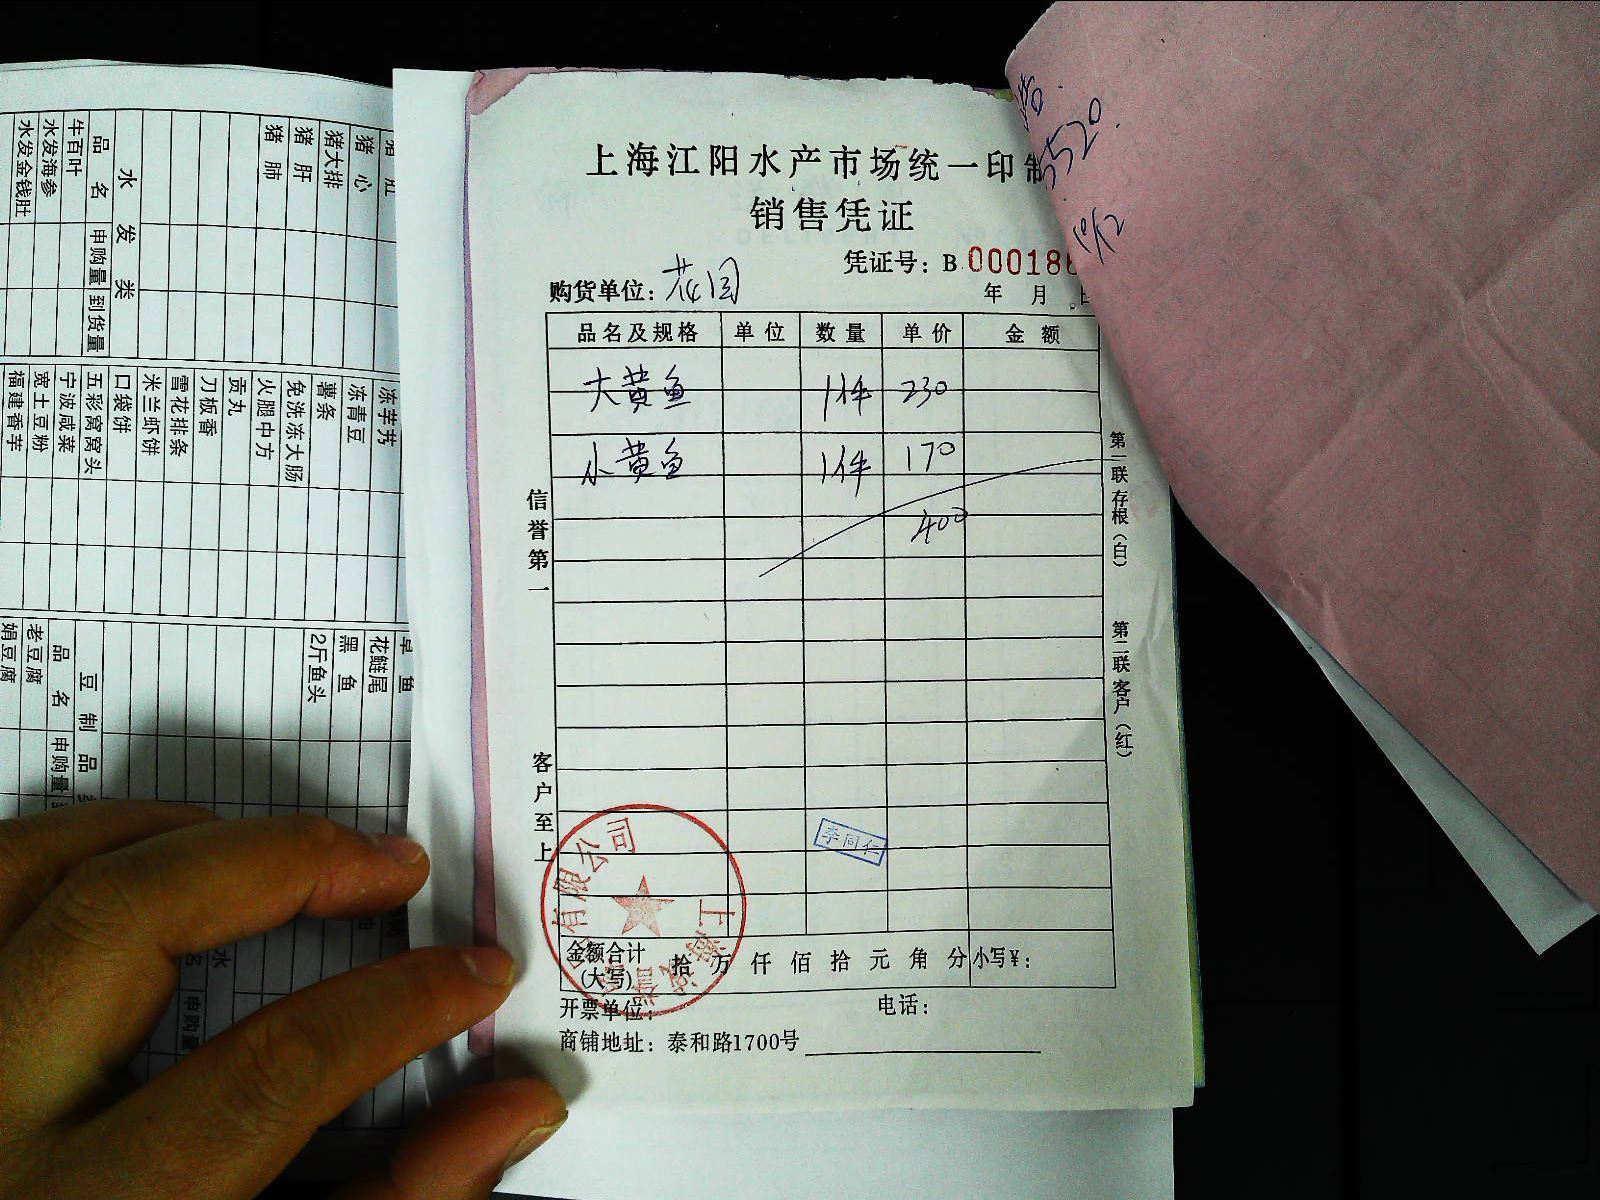 上海江阳水产市场统一印制
销售凭证
凭证号：B 000186
购货单位：花园
年 月 日
品名及规格 单位 数量 单价 金额
大黄鱼 1件 230
小黄鱼 1件 170
400
信誉第一
客户至上
第一联存根（白）
第二联客户（红）
李同仁
有限公司
上海
金额合计（大写） 拾 万 仟 佰 拾 元 角 分 小写¥：
开票单位：
电话：
商铺地址：泰和路1700号
5520
10/12
猪心
猪大排
猪肝
猪肺
水发类
品名 申购量 到货量
牛百叶
水发海参
水发金钱肚
冻芋艿
冻青豆
薯条
免洗冻大肠
火腿中方
贡丸
刀板香
雪花排条
米兰虾饼
口袋饼
五彩窝窝头
宁波咸菜
宽土豆粉
福建香芋
花鲢尾
黑鱼
2斤鱼头
豆制品类
品名 申购量
老豆腐
绢豆腐
水
名 申购量